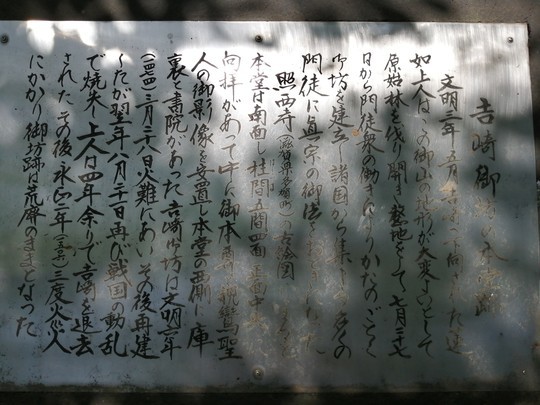 吉崎御坊の本堂跡
文明三年五月吉崎に下向された蓮
如上人は この御山の地形が大変よいとして
原始林を伐り開き 整地をして 七月二十七
日から門徒衆の働きによりかたのごとく
御坊を建立し 諸国から集まる多くの
門徒に真宗の御法を
照西寺(滋賀県多賀町)の古絵図
本堂は南面し 柱間五間四面 正面中央
向拝があって 中に御本尊 親鸞聖
人の御影像を安置し 本堂の西側に庫
裏と書院があった 吉崎御坊は 文明六年
(一四七四)三月二十八日火難にあい その後再建
したが翌年八月二十一日再び戦国の動乱
で焼失し 上人は四年余りで吉崎を退去
された その後 永正三年(一五〇六)三度火災
にかかり 御坊跡は荒廃のままとなった